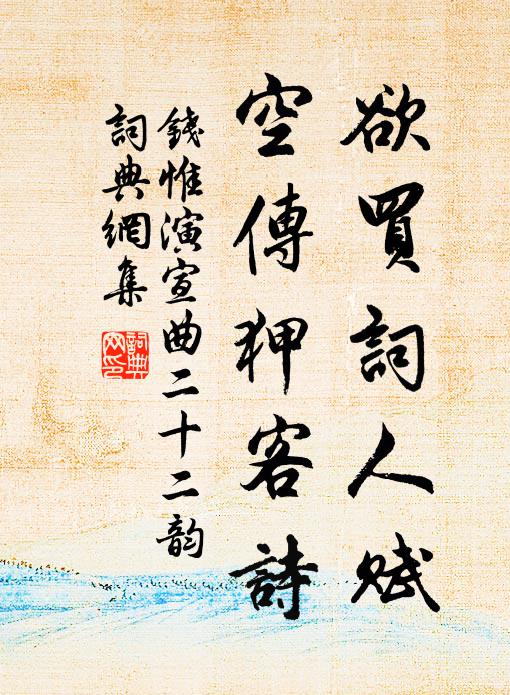 欲買詞人賦
空傳狎客詩
錢惟演宣曲二十二韵
詞典網集